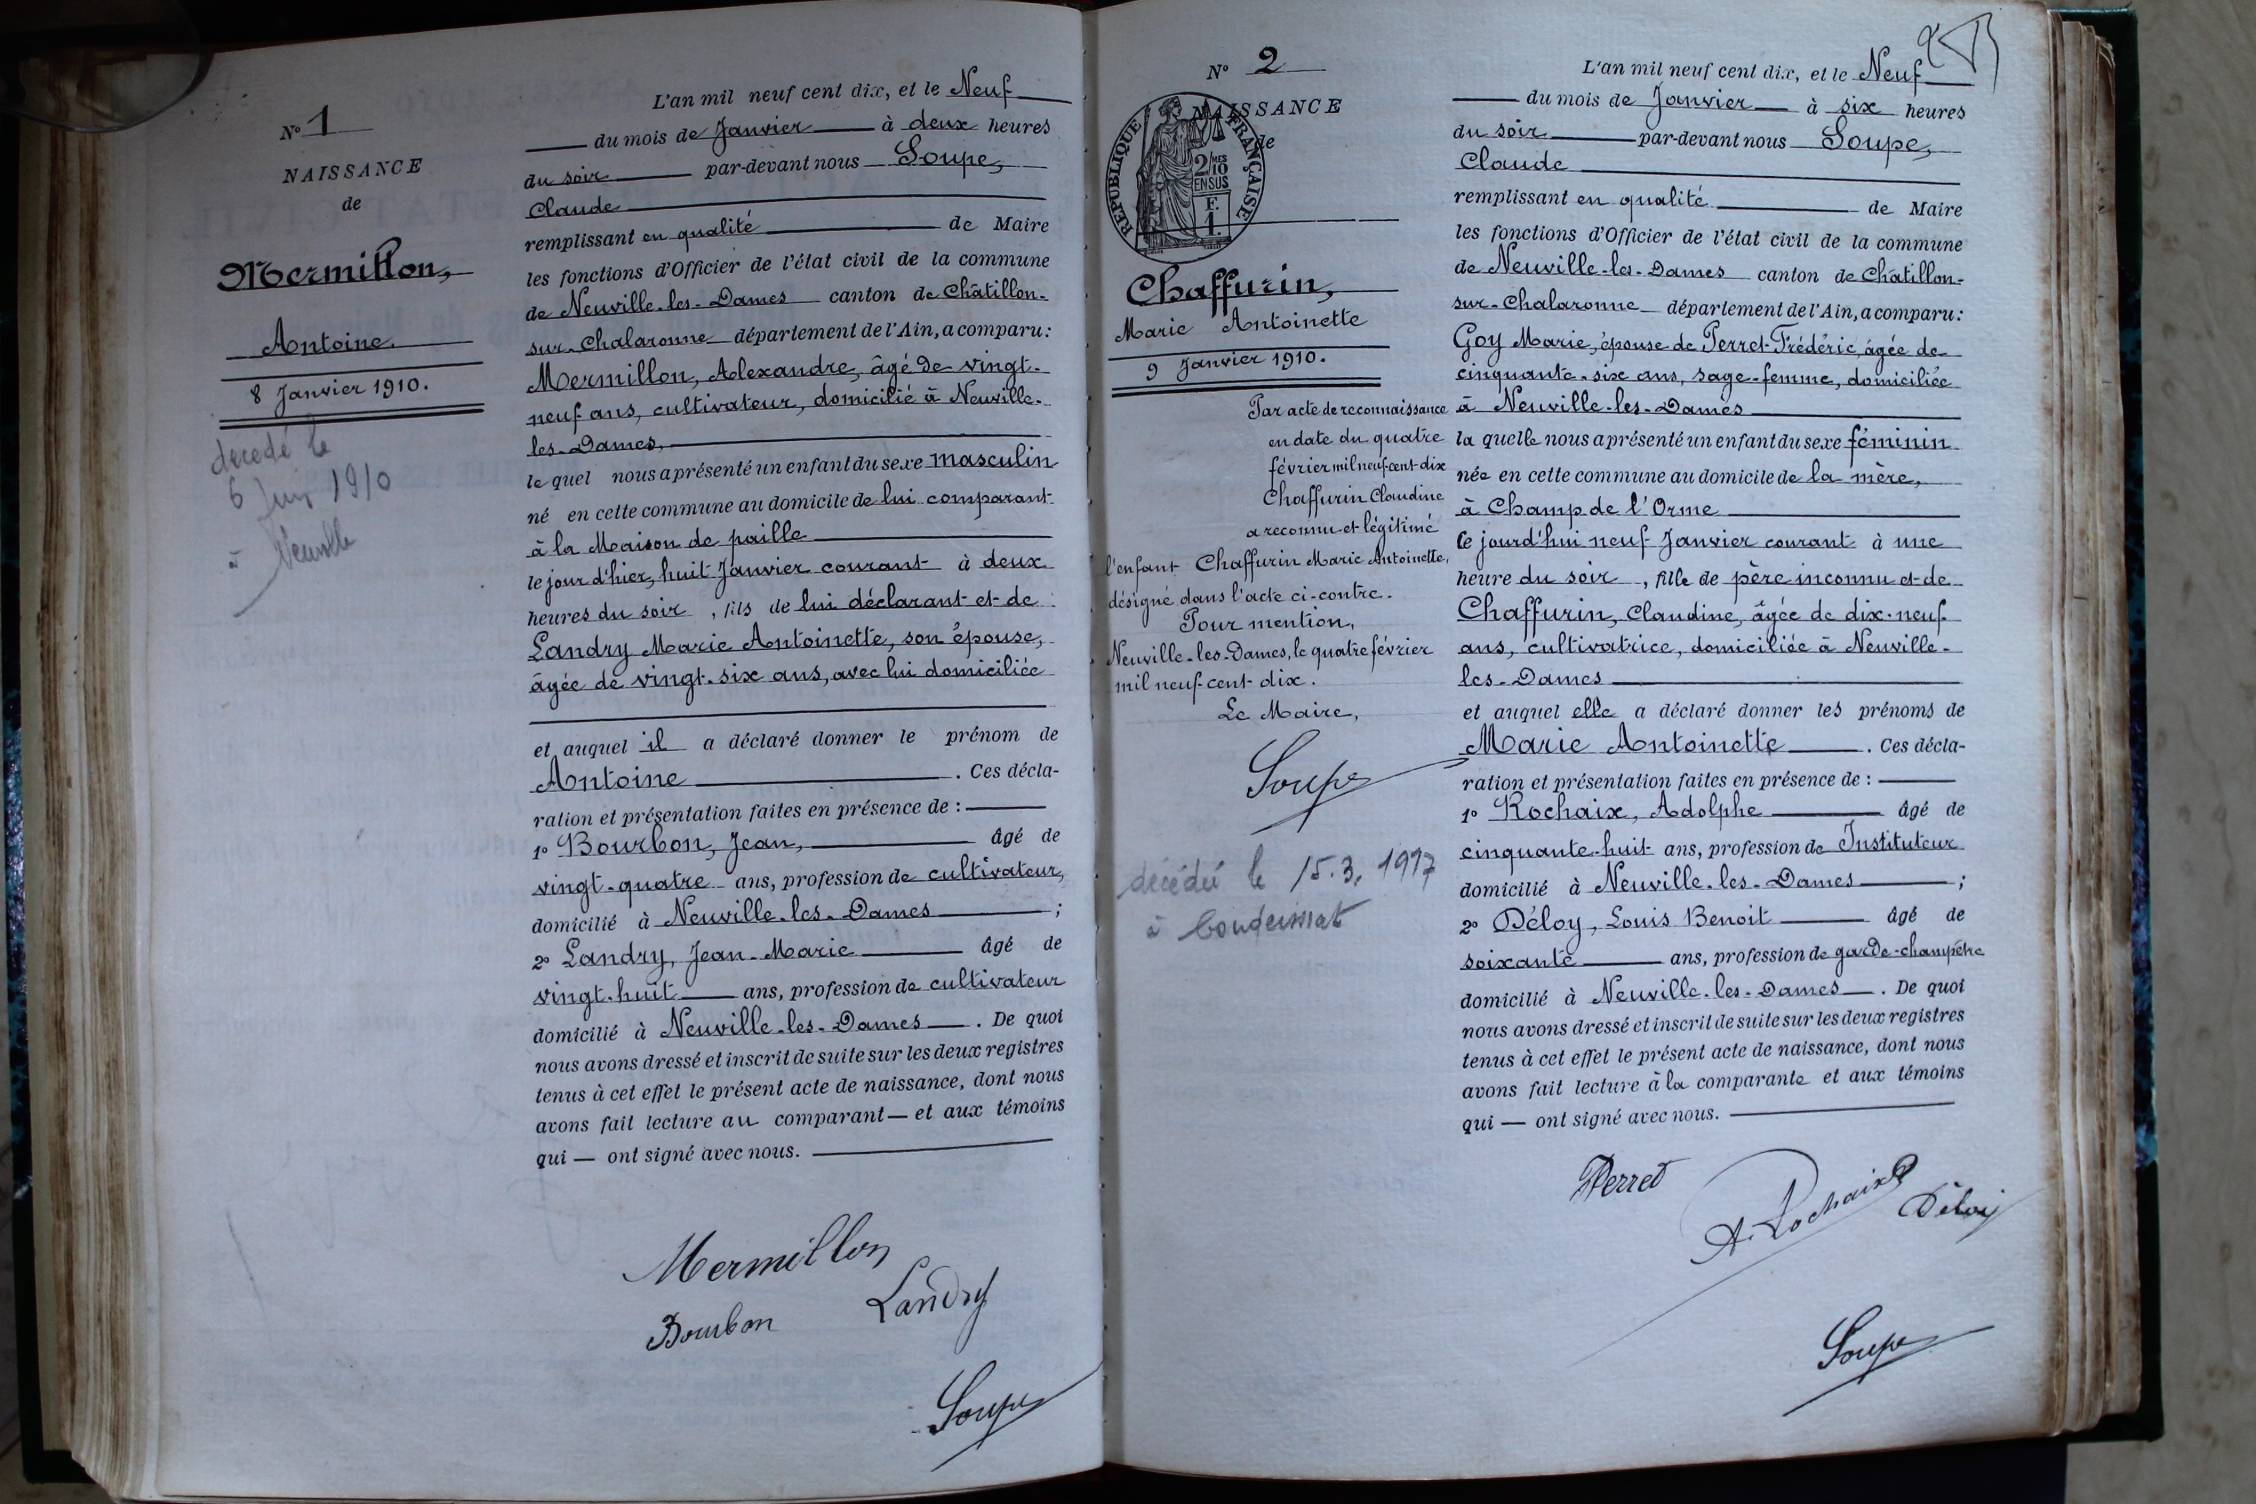 N° 1
NAISSANCE
de
Mermillon,
Antoine.
8 Janvier 1910.
decedé le
6 1910
à Neuville
L'an mil neuf cent dix, et le Neuf
du mois de Janvier à deux heures
du soir par-devant nous Soupe,
Claude
remplissant en qualité de Maire
les fonctions d'Officier de l'état civil de la commune
de Neuville-les-Dames canton de Châtillon-
sur-Chalaronne département de l'Ain, a comparu:
Mermillon, Alexandre, âgé de vingt-
neuf ans, cultivateur, domicilié à Neuville-
les-Dames,
le quel nous a présenté un enfant du sexe masculin
né en cette commune au domicile de lui comparant
à la Maison de paille
le jour d'hier, huit Janvier courant à deux
heures du soir, fils de lui déclarant et de
Landry Marie Antoinette, son épouse,
âgée de vingt-six ans, avec lui domiciliée
et auquel il a déclaré donner le prénom de
Antoine . Ces décla-
ration et présentation faites en présence de :
1° Bourbon, Jean, âgé de
vingt-quatre ans, profession de cultivateur,
domicilié à Neuville-les-Dames ;
2° Landry, Jean-Marie âgé de
vingt-huit ans, profession de cultivateur
domicilié à Neuville-les-Dames . De quoi
nous avons dressé et inscrit de suite sur les deux registres
tenus à cet effet le présent acte de naissance, dont nous
avons fait lecture au comparant — et aux témoins
qui — ont signé avec nous.
Mermillon
Bourbon Landry
Soupe
N° 2
NAISSANCE
de
RÉPUBLIQUE FRANÇAISE
2/10
MES
EN SUS
F.
1.
Chaffurin,
Marie Antoinette
9 Janvier 1910.
Par acte de reconnaissance
en date du quatre
février mil neuf-cent-dix
Chaffurin Claudine
a reconnu et légitimé
l'enfant Chaffurin Marie Antoinette,
désigné dans l'acte ci-contre.
Pour mention,
Neuville-les-Dames, le quatre février
mil neuf-cent-dix.
Le Maire,
Soupe
décédée le 15.3.1997
à Condeissiat
L'an mil neuf cent dix, et le Neuf
du mois de Janvier à six heures
du soir par-devant nous Soupe,
Claude
remplissant en qualité de Maire
les fonctions d'Officier de l'état civil de la commune
de Neuville-les-Dames canton de Châtillon-
sur-Chalaronne département de l'Ain, a comparu:
Goy Marie, épouse de Perret-Frédéric, âgée de
cinquante-six ans, sage-femme, domiciliée
à Neuville-les-Dames
la quelle nous a présenté un enfant du sexe féminin
née en cette commune au domicile de la mère,
à Champ de l'Orme
Ce jourd'hui neuf Janvier courant à une
heure du soir, fille de père inconnu et de
Chaffurin, Claudine, âgée de dix-neuf
ans, cultivatrice, domiciliée à Neuville-
les-Dames
et auquel elle a déclaré donner les prénoms de
Marie Antoinette . Ces décla-
ration et présentation faites en présence de :
1° Rochaix, Adolphe âgé de
cinquante-huit ans, profession de Instituteur
domicilié à Neuville-les-Dames ;
2° Déloy, Louis Benoit âgé de
soixante ans, profession de garde-champêtre
domicilié à Neuville-les-Dames . De quoi
nous avons dressé et inscrit de suite sur les deux registres
tenus à cet effet le présent acte de naissance, dont nous
avons fait lecture à la comparante et aux témoins
qui — ont signé avec nous.
Perret
A. Rochaix Déloy
Soupe